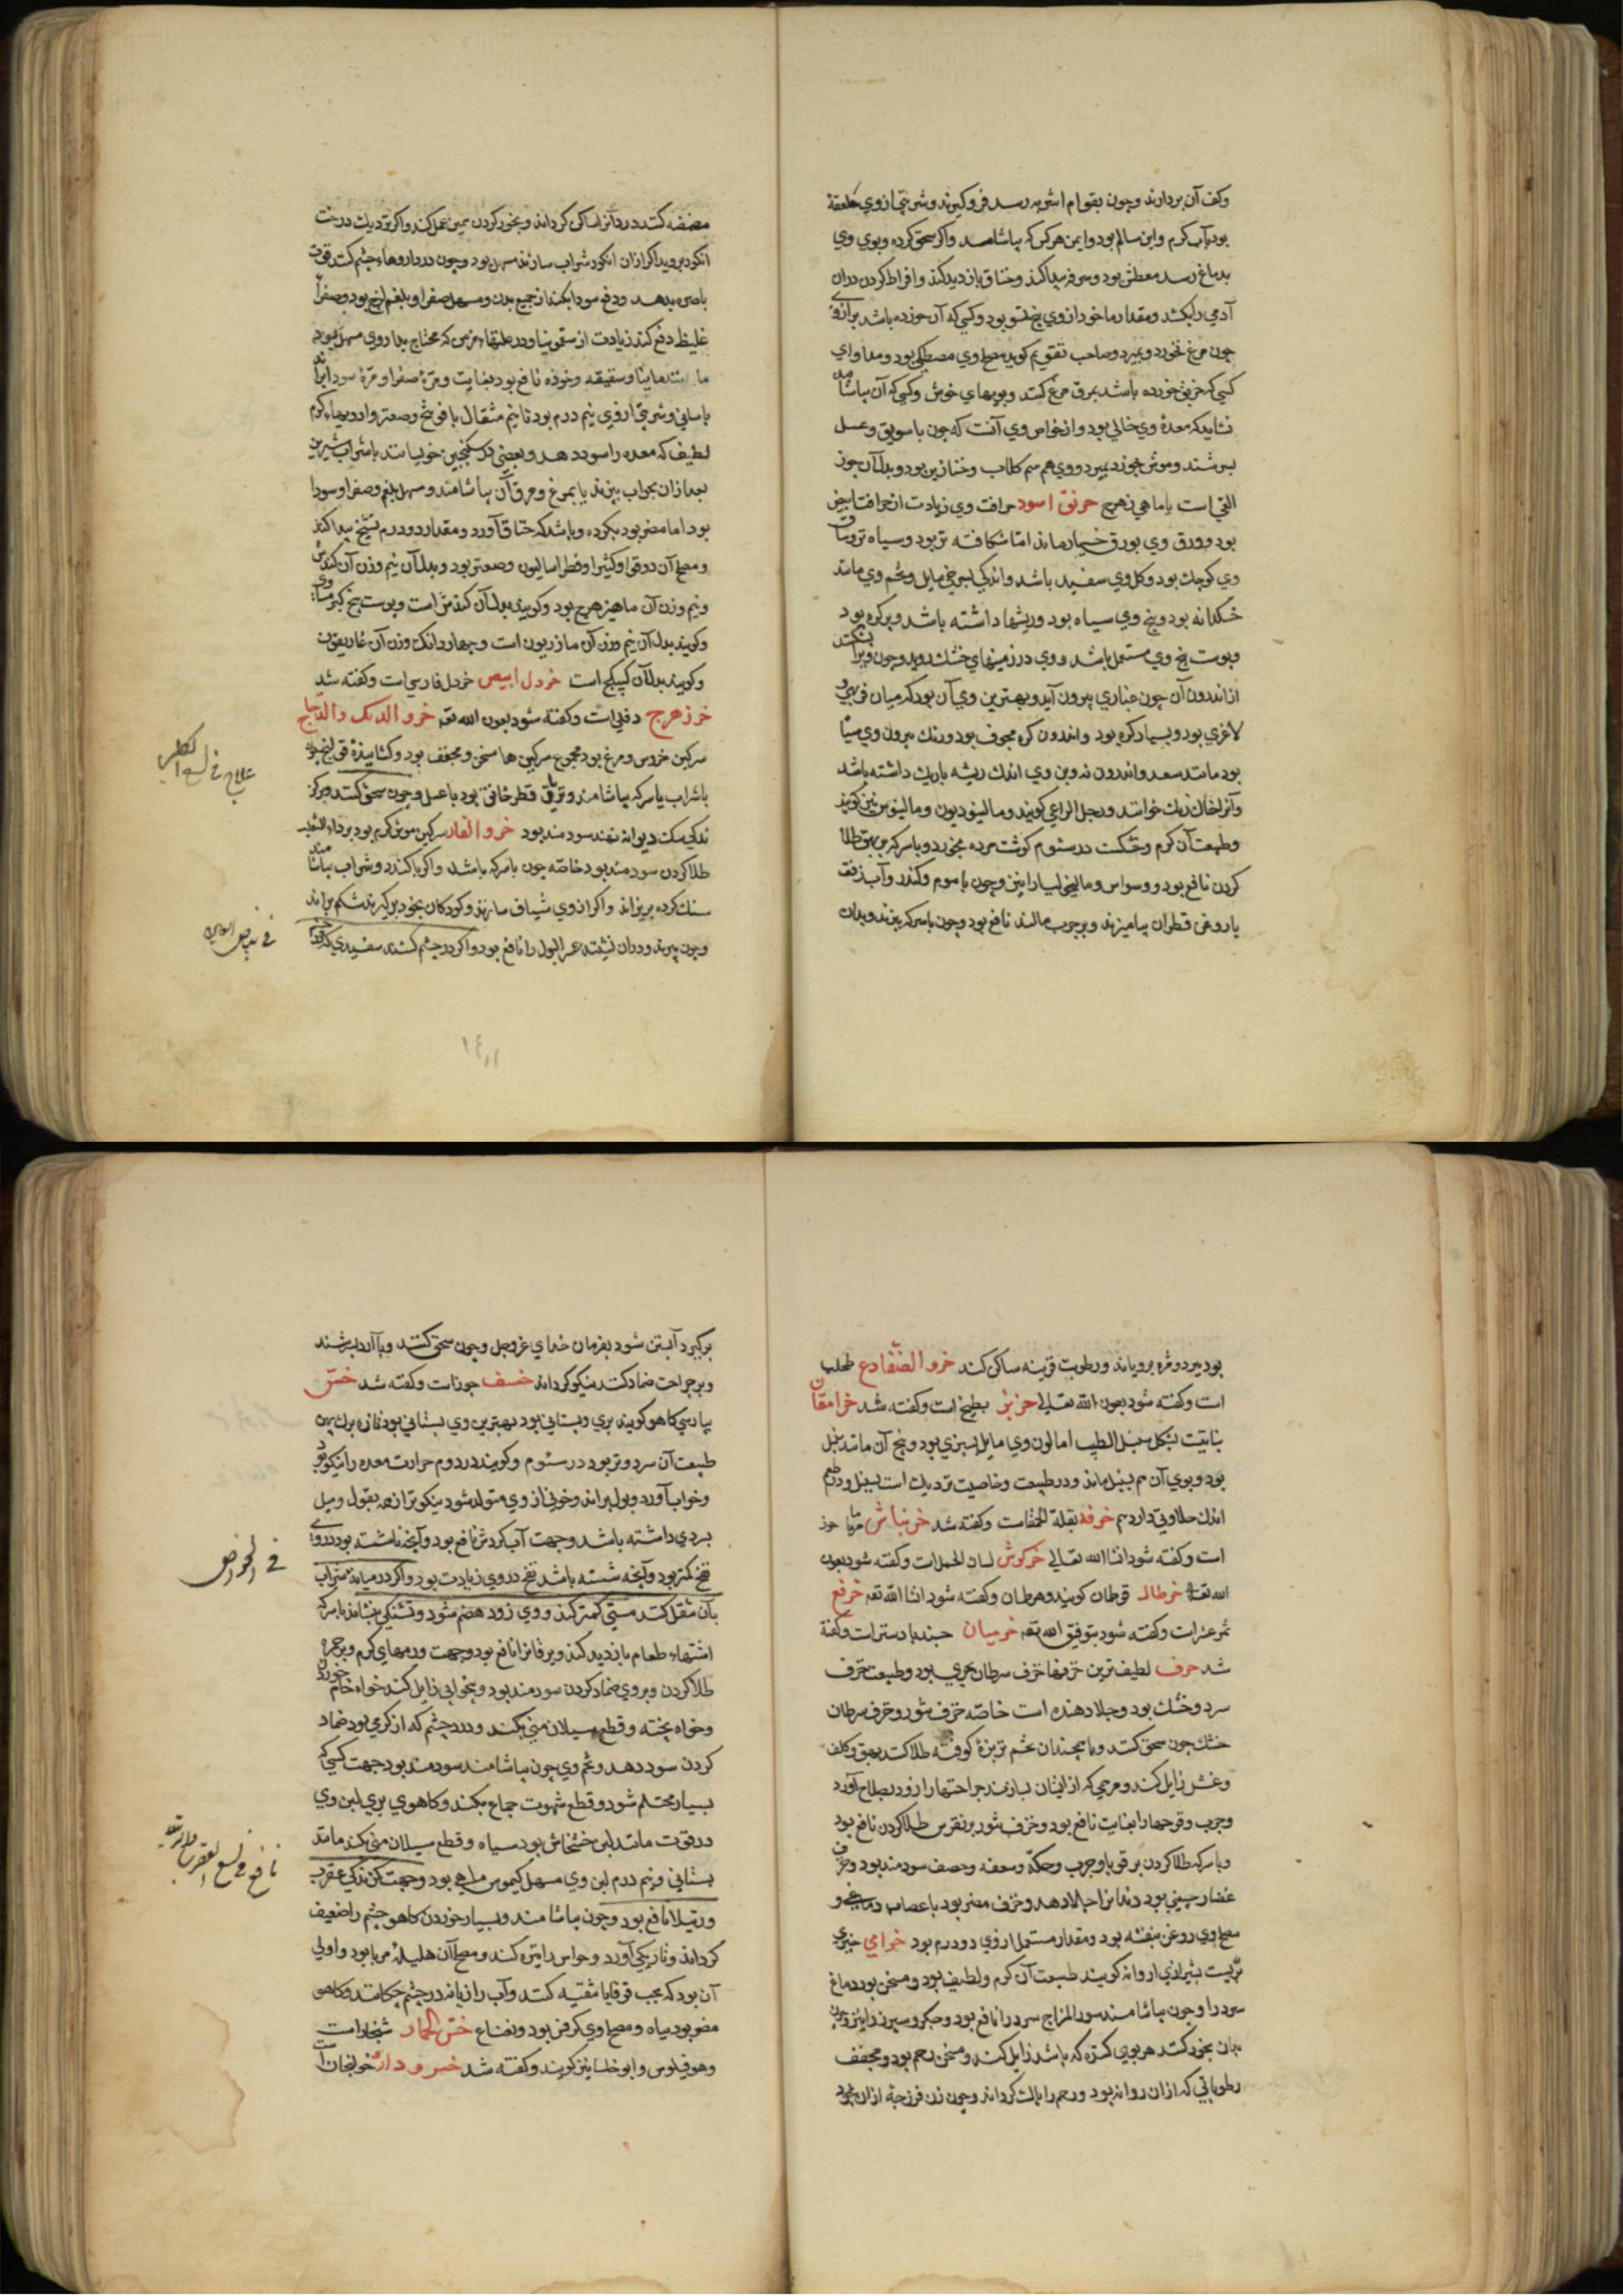 وکف آن بردارند وچون بقوام اشربه رسد فروگیرند وشربتی ازوی ملعقة
بود بآب گرم واین سالم بود وایمن هرکس که بیاشامند واگر سحق کرده وبوی وی
بدماغ رسد معطش بود وسرفه پیدا کند وخناق بازدید کند وافراط کردن دران
آدمی رابکشد ومقدار ماخود ازوی پنج تسو بود وکسی که آن خورده باشد براز وی
چون مرغ بخورد بمیرد وصاحب تقویم گوید مصلح وی مصطکی بود ومداوای
کسی که خربق خورده باشد بمرق مرغ کنند وبویهای خوش وکسی که آن بیاشامد
نشاید که معدۀ وی خالی بود وازخواص وی آنست که چون با سویق وعسل
بسرشند وموش بخورد بمیرد ووی هم سم کلاب وخنازیر بود وبدل آن جوز
القی است یا ماهی زهرج خربق اسود حرافت وی زیادت ازحرافت ابیض
بود وورق وی بورق خیار ماند اما شکافته تر بود وسیاه تر وساق
وی کوچک بود وگل وی سفید باشد واندکی بسرخی مایل وتخم وی مانند
خسکدانه بود وبیخ وی سیاه بود وریشها داشته باشد وپر گره بود
وپوست بیخ وی مستعمل باشد ووی درزمینهای خشک روید وچون ویرا بشکنند
از اندرون آن چون غباری بیرون آید وبهترین وی آن بود که میان فربهی و
لاغری بود وبسیار گره بود واندرون گره مجوف بود ورنگ بیرون وی سیاه
بود مانند سعد واندرون نه وبن وی اندک ریشه باریک داشته باشد
وآنرا خانق زنک خوانند ورجل الراعی گویند ومالینودیون ومالینوس نیز گویند
وطبیعت آن گرم وخشکست درسئوم گوشت مرده بخورد وبا سرکه بر بهق طلا
کردن نافع بود ووسواس ومالیخولیا را نیز وچون با موم وکندر وآب زفت
یا روغن قطران بیامیزند وبرجرب مالند نافع بود وچون باسرکه بپزند وبدان
مضمضه کنند درد دانرا ساکن گرداند وبخور کردن همین عمل کند واگر نزدیک درخت
انگور بروید اگر ازان انگور شراب سازند مسهل بود وچون درداروهاء چشم کنند قوت
باصره بدهد ودفع سودا بکند از جمیع بدن ومسهل صفرا وبلغم لزج بود وصفرا
غلیظ دفع کند زیادت از سقمونیا ودر علتهاء مزمن که محتاج بداروی مسهل بود
وشقیقه وخوده نافع بود بغایت ومرۀ صفرا ومرۀ سودا براند
باسانی وشربتی ازوی نیم درم بود تا نیم مثقال با فوتنج وصعتر وادویهاء گرم
لطیف که معده را سود دهد وبعضی در سکنجبین خویسانند یا شراب شیرین
بعد ازان بجوآب بپزند یا بمرغ ومرق آن بیاشامند ومسهل بلغم وصفرا وسودا
بود اما مضر بود بگرده وباشد که خناق آورد ومقدار دودرم تشنج پیدا کند
ومصلح آن دوقو وکثیرا وفطراسالیون وصعتر بود وبدل آن نیم وزن آن کندش
ونیم وزن آن ماهیزهرج بود وگویند بدل آن کندش است وپوست بیخ کبر مساوی
وگویند بدل آن نیم وزن آن مازریون است وچهاردانک وزن آن غاریقون
وگویند بدل آن کپیکج است خردل ابیض خردل فارسی است وگفته شد
خرزهرج دفلی است وگفته شود بعون الله تعه خرو الدیک والدجاج
سرگین خروس ومرغ بود مجموع سرگین ها مسخن ومجفف بود وگشایندۀ قولنج بود
باشراب یا سرکه بیاشامند وتریاق فطر خانق بود با عسل وچون سحق کنند وبر گز
ندگی سک دیوانه نهند سودمند بود خرو الفار سرگین موش گرم بود برداء الثعلب
طلا کردن سودمند بود خاصه چون با سرکه باشد واگر با کندر وشراب بیاشامند
سنک گرده بریزاند واگر ازوی شیاف سازند وکودکان بخود برگیرند شکم براند
وچون بپزند ودران نشینند عسر البول را نافع بود واگر درچشم کشند سفیدی که در
علاج فی لسع الکلب
فی بیاض العین
بود ببرد ومژه برویاند ورطوبت قرنیه ساکن کند خرو الضفادع طحلب
است وگفته شود بعون الله تعالی خربز بطیخ است وگفته شد خرامقان
نباتیست بشکل سنبل الطیب اما لون وی مایل بسبزی بود وبیخ آن مانند سنبل
بود وبوی آن هم بسنبل ماند ودر طبیعت وخاصیت نزدیک است بسنبل ودرطعم
اندک حلاوتی دارد هم خرفه بقلة الحمقاست وگفته شد خرنباش
است وگفته شود انشا الله تعالی خرگوش لسان الحمل است وگفته شود بعون
الله تعالی خرطال قرطان گویند وهرطان وگفته شود انشا الله تعه خرفع
ثمر عشر است وگفته شود بتوفیق الله تعه خرمیان جند بادستر است وگفته
شد خزف لطیف ترین خزفها خزف سرطان بحری بود وطبیعت خزف
سرد وخشک بود وجلا دهنده است خاصه خزف تنور وخزف سرطان
خشک چون سحق کنند وبا همچندان تخم تربزۀ کوفته طلا کنند بهق وکلف
ونمش زایل کند ومرهمی که از ایشان بسازند جراحتها را زود بصلاح آورد
وجرب وقرحها را بغایت نافع بود وخزف تنور بر نقرس طلا کردن نافع بود
وبا سرکه طلا کردن بر قوبا وجرب وحکه وسعفه وحصف سودمند بود وخزف
غضار چینی بود دندانرا جلا دهد وخزف مضر بود باعصاب و
مصلح وی روغن بنفشه بود ومقدار مستعمل ازوی دودرم بود خزامی خیری
بریست بشیرازی اروانه گویند طبیعت آن گرم ولطیف بود ومسخن بود دماغ
سرد را وچون بیاشامند سوء المزاج سرد را نافع بود وجگر وسپرز را نیز وچون
بدان بخور کنند هر بوی گنده که باشد زایل کند ومسخن رحم بود ومجفف
رطوباتی که ازان روانه بود ورحم را پاک گرداند وچون زن فرزجه ازان بخود
برگیرد آبستن شود بفرمان خدای عزوجل وچون سحق کنند وبا آرد بسرشند
وبرجراحت ضماد کنند نیکو گرداند خسف جوزست وگفته شد خس
بپارسی کاهو گویند بری وبستانی بود بهترین وی بستانی بود تازه برک پهن
طبیعت آن سرد وتر بود در سئوم وگویند در دوم حرارت معده را نیکو بود
وخواب آورد وبول براند وخونی ازوی متولد شود نیکوتر از همه بقول ومیل
بسردی داشته باشد وجهت آب گردش نافع بود وآنچه ناشسته بود دروی
نفخ کمتر بود وآنچه شسته باشد نفخ دروی زیادت بود واگر درمیانۀ شراب
بآن تنقل کنند مستی کمتر کند ووی زود هضم شود وتشنگی بنشاند با سرکه
اشتهاء طعام بازدید کند ویرقانرا نافع بود وجهت ورمهای گرم وبرجمره
طلا کردن وبروی ضماد کردن سودمند بود وبیخوابی زایل کند خواه خام خورند
وخواه پخته وقطع سیلان منی بکند ودرد چشم که از گرمی بود ضماد
کردن سود دهد وتخم وی چون بیاشامند سودمند بود جهت کسی که
بسیار محتلم شود وقطع شهوت جماع بکند وکاهوی بری لبن وی
درقوت مانند لبن خشخاش بود سیاه وقطع سیلان منی کند مانند
بستانی ونیم درم لبن وی مسهل کیموس مایی بود وجهت گزندگی عقرب
ورتیلا نافع بود وچون بیاشامند وبسیار خوردن کاهو چشم را ضعیف
گرداند وتاریکی آورد وحواس را تیره کند ومصلح آن هلیلۀ مربا بود واولی
آن بود که بحب قوقایا تنقیه کنند وآب رازیانه درچشم چکانند وکاهو
مضر بود بباه ومصلح وی کرفس بود ونعناع خس الحمار شنجارست
وهوفیلوس وابو خلسا نیز گویند وگفته شد خسرودارو خولنجان است
فی الخواص
نافع فی لسع العقرب